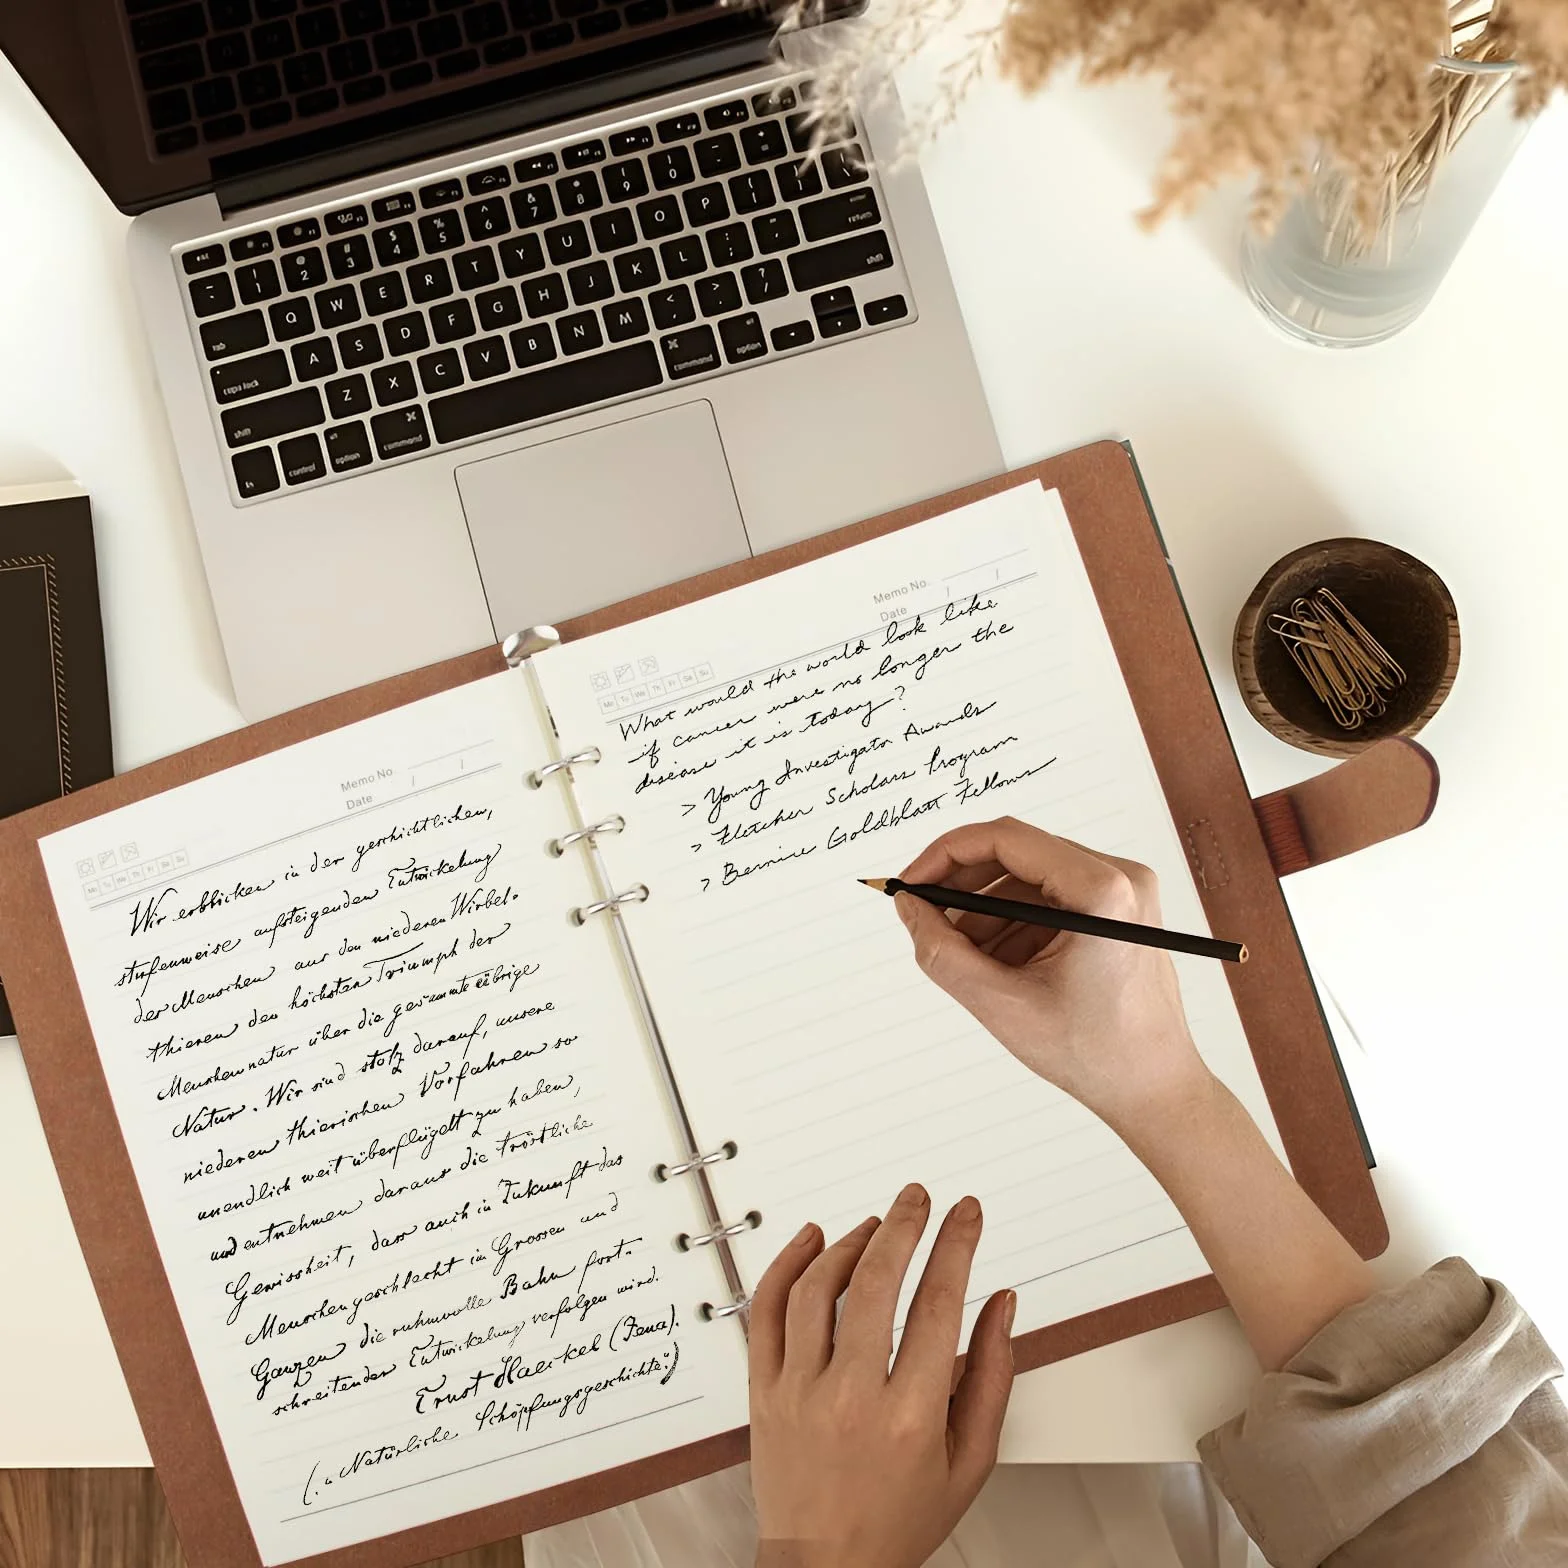 Memo No.
Date / /
Mo Tu We Th Fr Sa Su
Wir erblicken in der geschichtlichen,
stufenweise aufsteigenden Entwickelung
der Menschen aus den niederen Wirbel-
thieren den höchsten Triumph der
Menschennatur über die gesammte übrige
Natur. Wir sind stolz darauf, unsere
niederen thierischen Vorfahren so
unendlich weit überflügelt zu haben,
und entnehmen daraus die tröstliche
Gewissheit, dass auch in Zukunft das
Menschengeschlecht im Grossen und
Ganzen die ruhmvolle Bahn fort-
schreitender Entwickelung verfolgen wird.
Ernst Haeckel (Jena).
(„Natürliche Schöpfungsgeschichte“)
Memo No. /
Date /
Mo Tu We Th Fr Sa Su
What would the world look like
if cancer were no longer the
disease it is today?
> Young Investigator Awards
> Fletcher Scholars Program
> Bernice Goldblatt Fellows
~ ! @ # $ % ^ & * ( ) _ +
1 2 3 4 5 6 7 8 9 0 - =
tab Q W E R T Y U I O P { } | \
caps lock A S D F G H J K L : ; " ' return
shift Z X C V B N M < , > . ? / shift
fn control option command command option